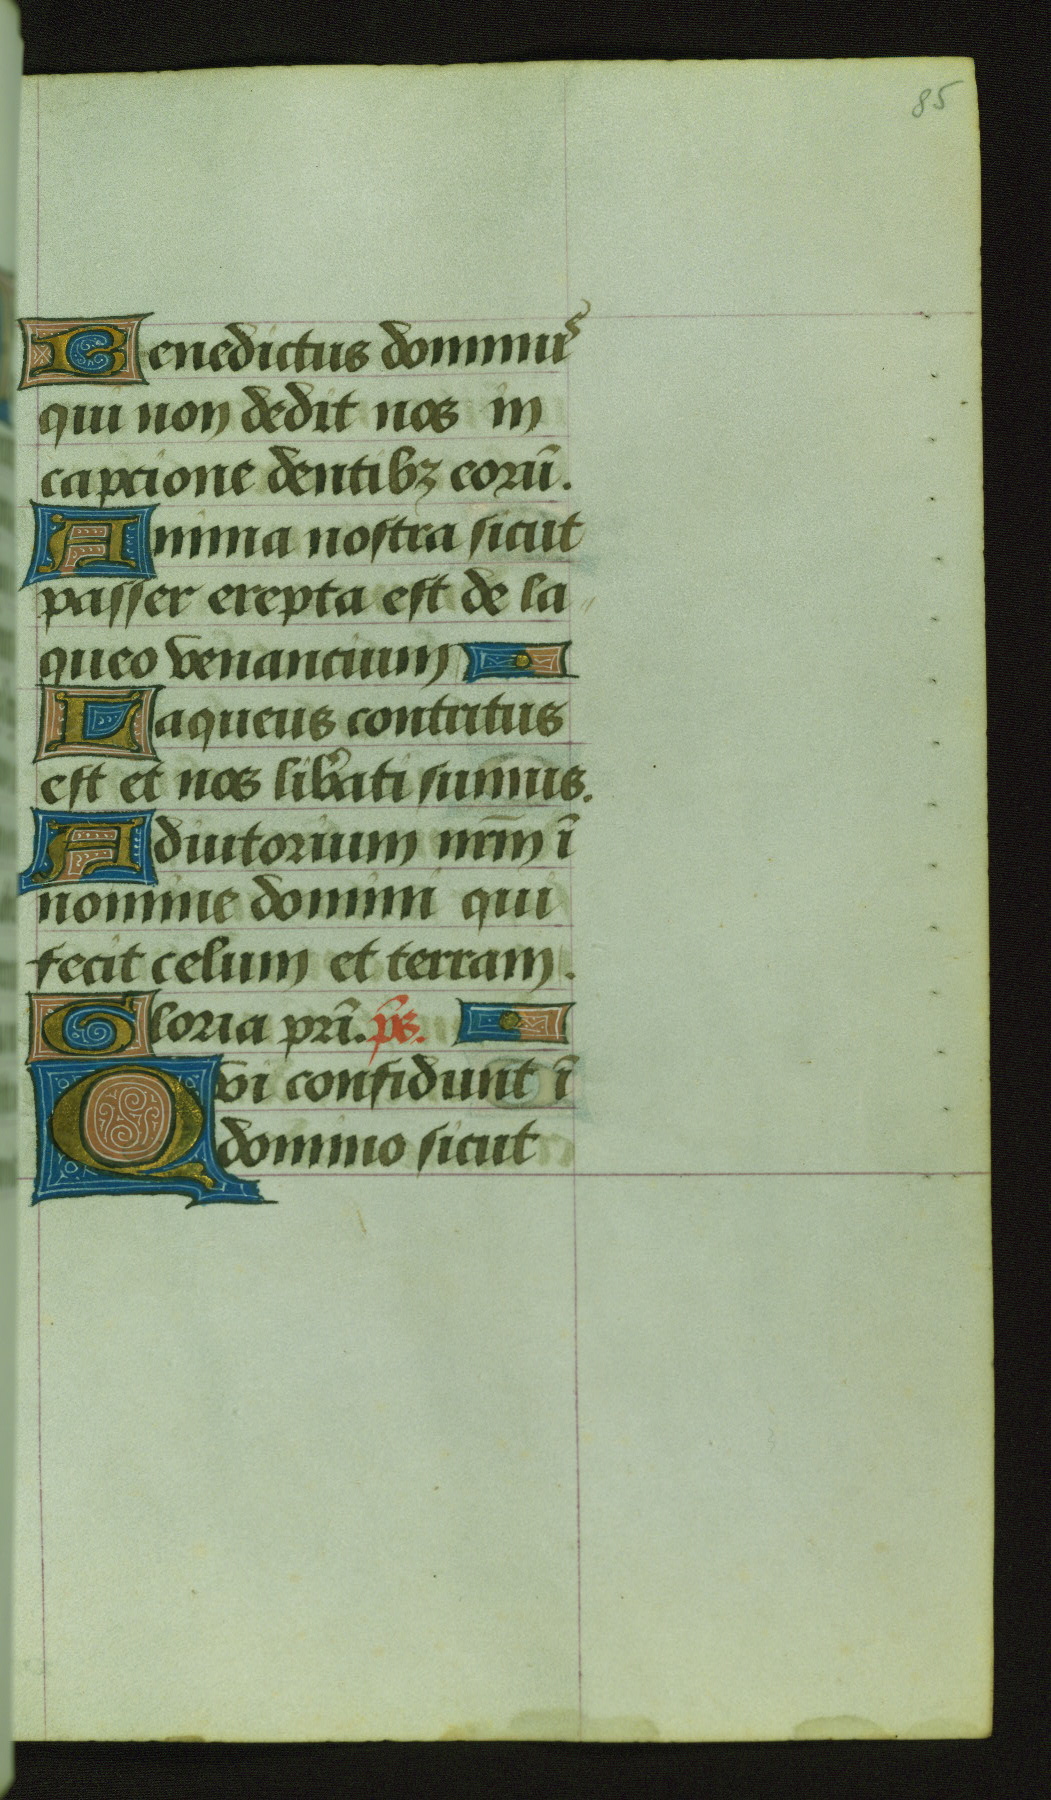 85
Benedictus dominus
qui non dedit nos in
capcione dentibꝫ eorū.
Anima nostra sicut
passer erepta est de la
queo venancium
Laqueus contritus
est et nos lib̾ati sumus.
Adiutorium nr̄m ī
nomine domini qui
fecit celum et terram.
Gloria pr̄i. p̄s.
Qvi confidunt ī
domino sicut